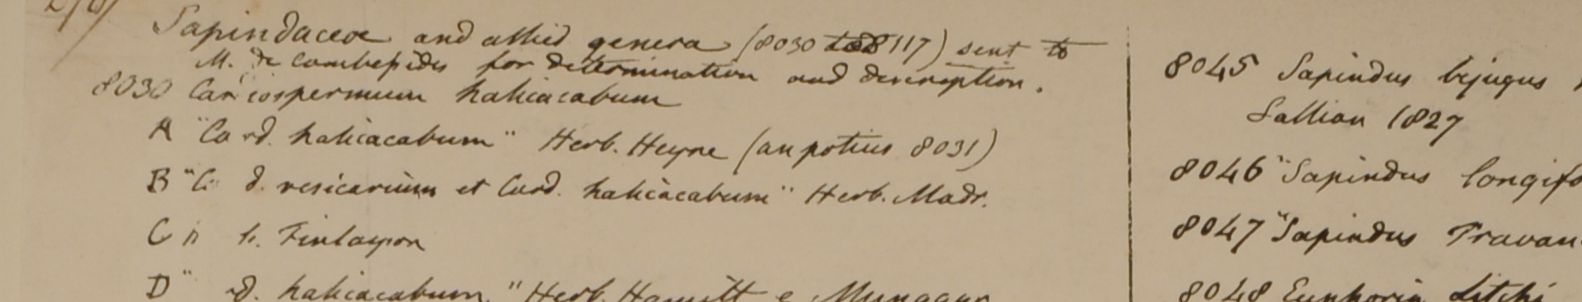 Sapindaceae and allied genera (8030 to 8117) sent to
M. de Cambessèdes for determination and description.
8030 Cardiospermum halicacabum
A "Card. halicacabum" Herb. Heyne (an potius 8031)
B "C d. vesicarium et Card. halicacabum" Herb. Madr.
C h. Finlayson
D " d. halicacabum." Herb. Hamilt e Mungger
8045 Sapindus bijugus
Sallian 1827
8046 "Sapindus longifo
8047 "Sapindus Travan
8048 Euphoria Litchi